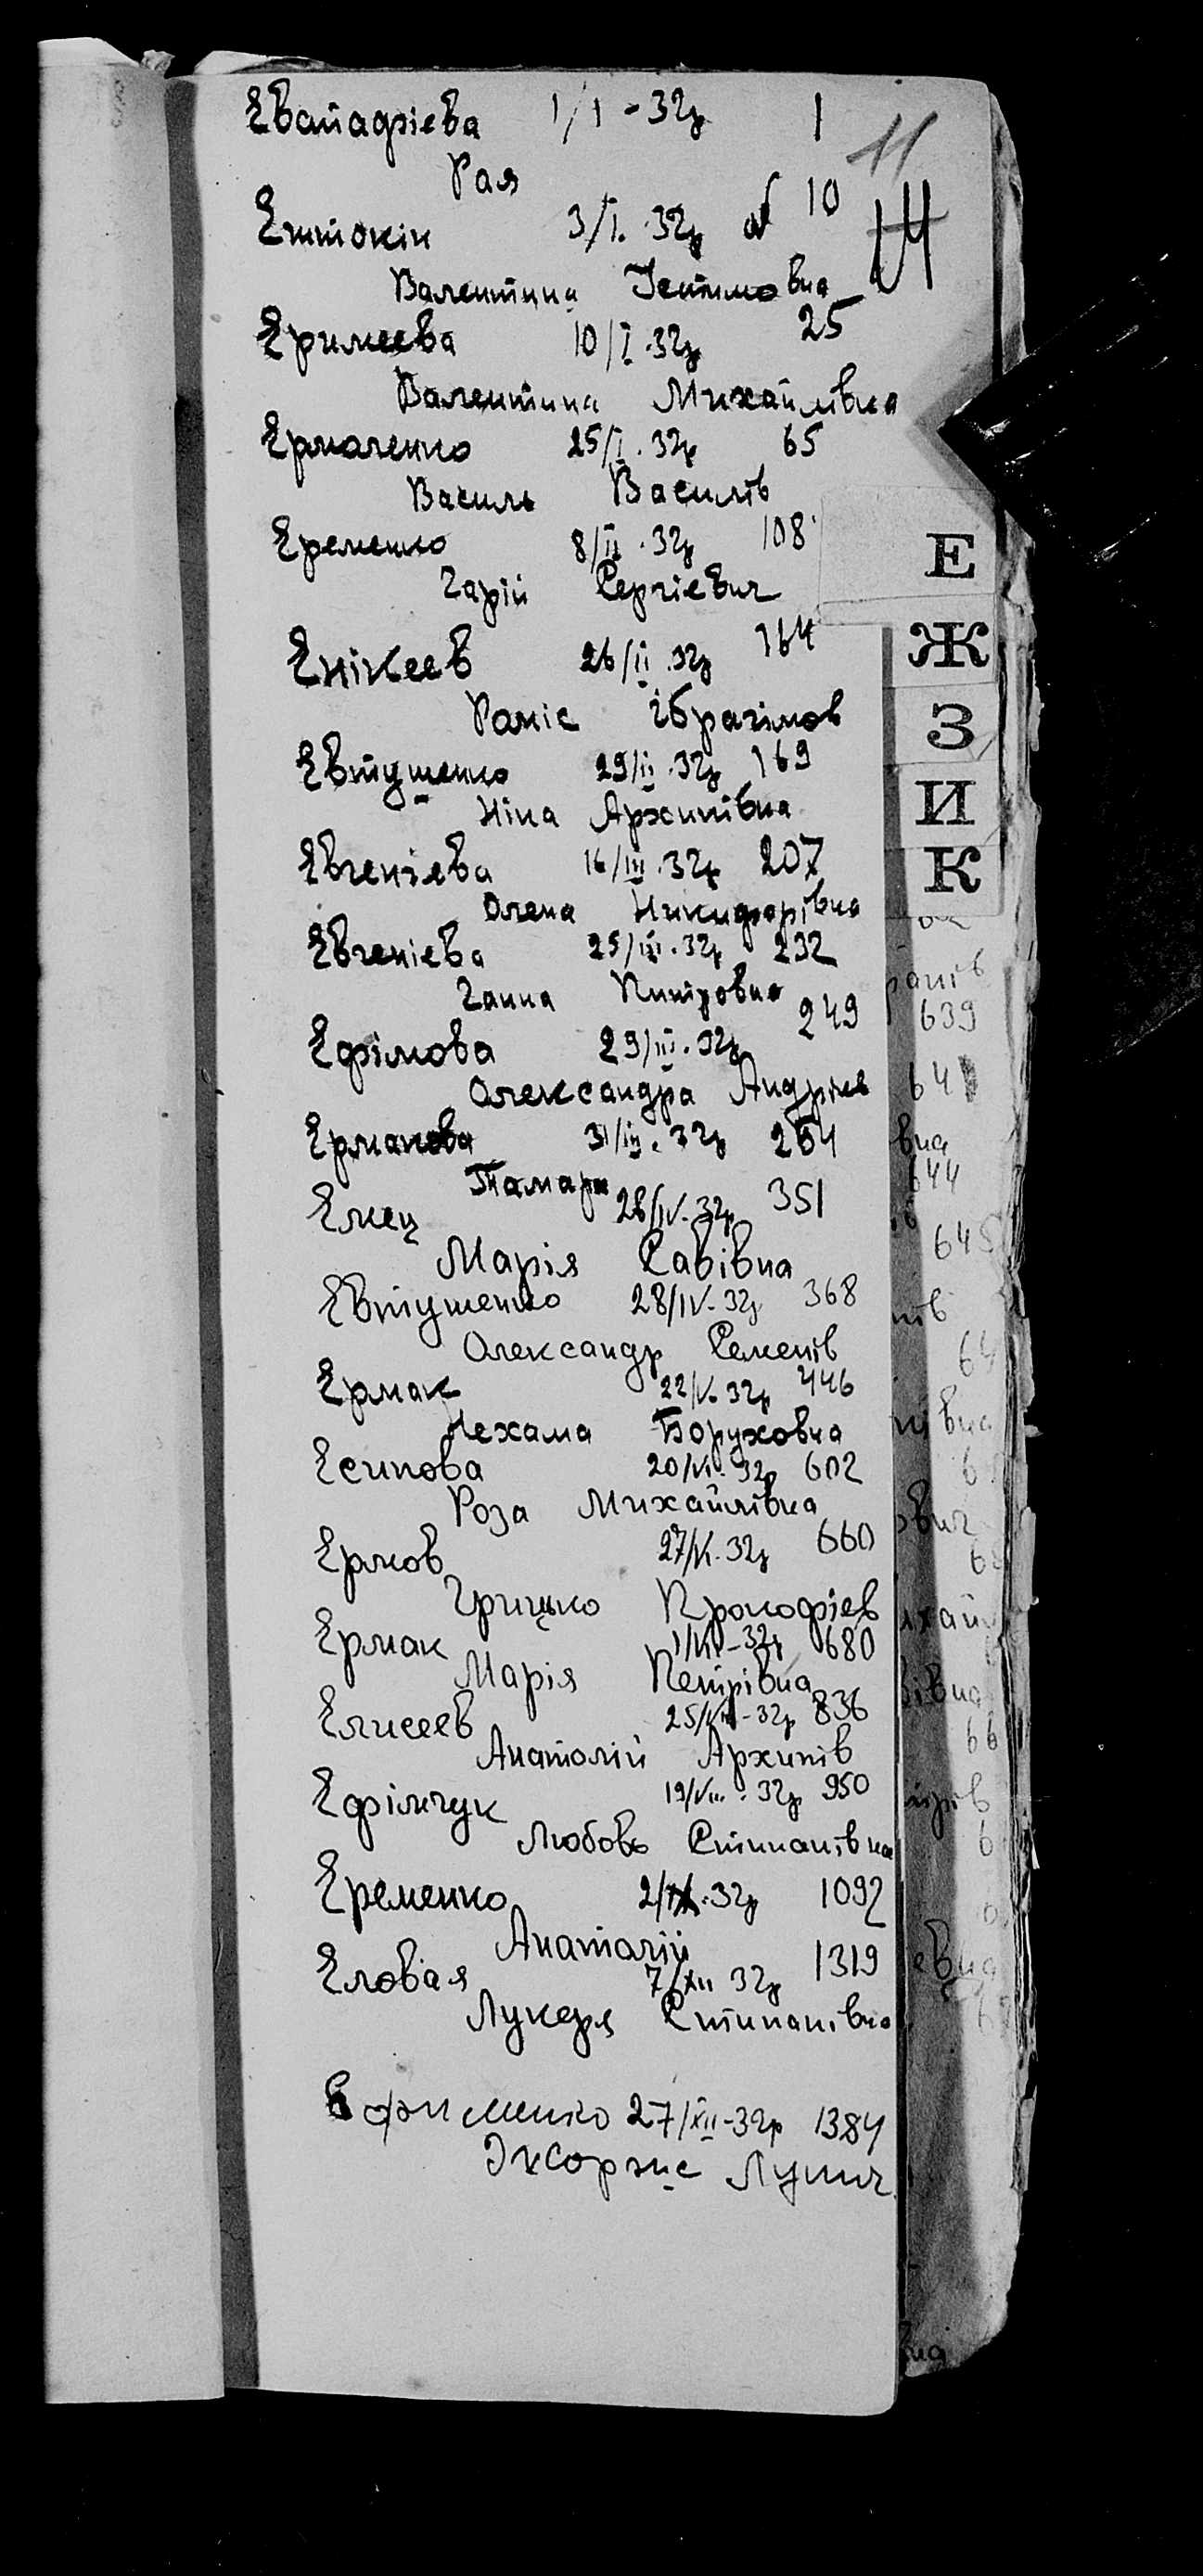 Евападрієва 1/I - 32р 1
11
Рая
Ептокін 3/I. 32р 10
Валентина
Еримеєва 10/I. 32р 25
Валентина Михайлівна
Ермоленко 25/I. 32р 65
Василь Василів
Еременко 8/II. 32р 108
Гарій Сергієвич
Е
Ж
З
И
К
Енікеев 26/II. 32р 164
Раміс Ібрагімов
Евтушенко 29/II. 32р 169
Ніна Архипівна
Евгенієва 16/III. 32р 207
Олена Никифорівна
Евгенієва 25/III. 32р 232
Ганна
Ефімова 29/III. 32р 249
Олександра Андріев
Ермакова 31/III. 32р 254
Тамара
Емец 28/IV. 32р 351
Марія Савівна
Евтушенко 28/IV- 32р 368
Олександр Семенів
Ермак 22/V. 32р 446
Нехама Боруховна
Есипова 20/VI. 32р 602
Роза Михайлівна
Ермов 27/VI. 32р 660
Грицько Прокофієв
Ермак 1/VII - 32р 680
Марія Петрівна
Елисеев 25/VII - 32р 836
Анатолій Архипів
Ефімчук 19/VIII - 32р 950
Любовь Стипанівна
Еременко 2/IX. 32р 1092
Анатолій
Еловая 7/XII 32р 1319
Лукеря Стипанівна
Ефименко 27/XII-32р 1384
639
644
645